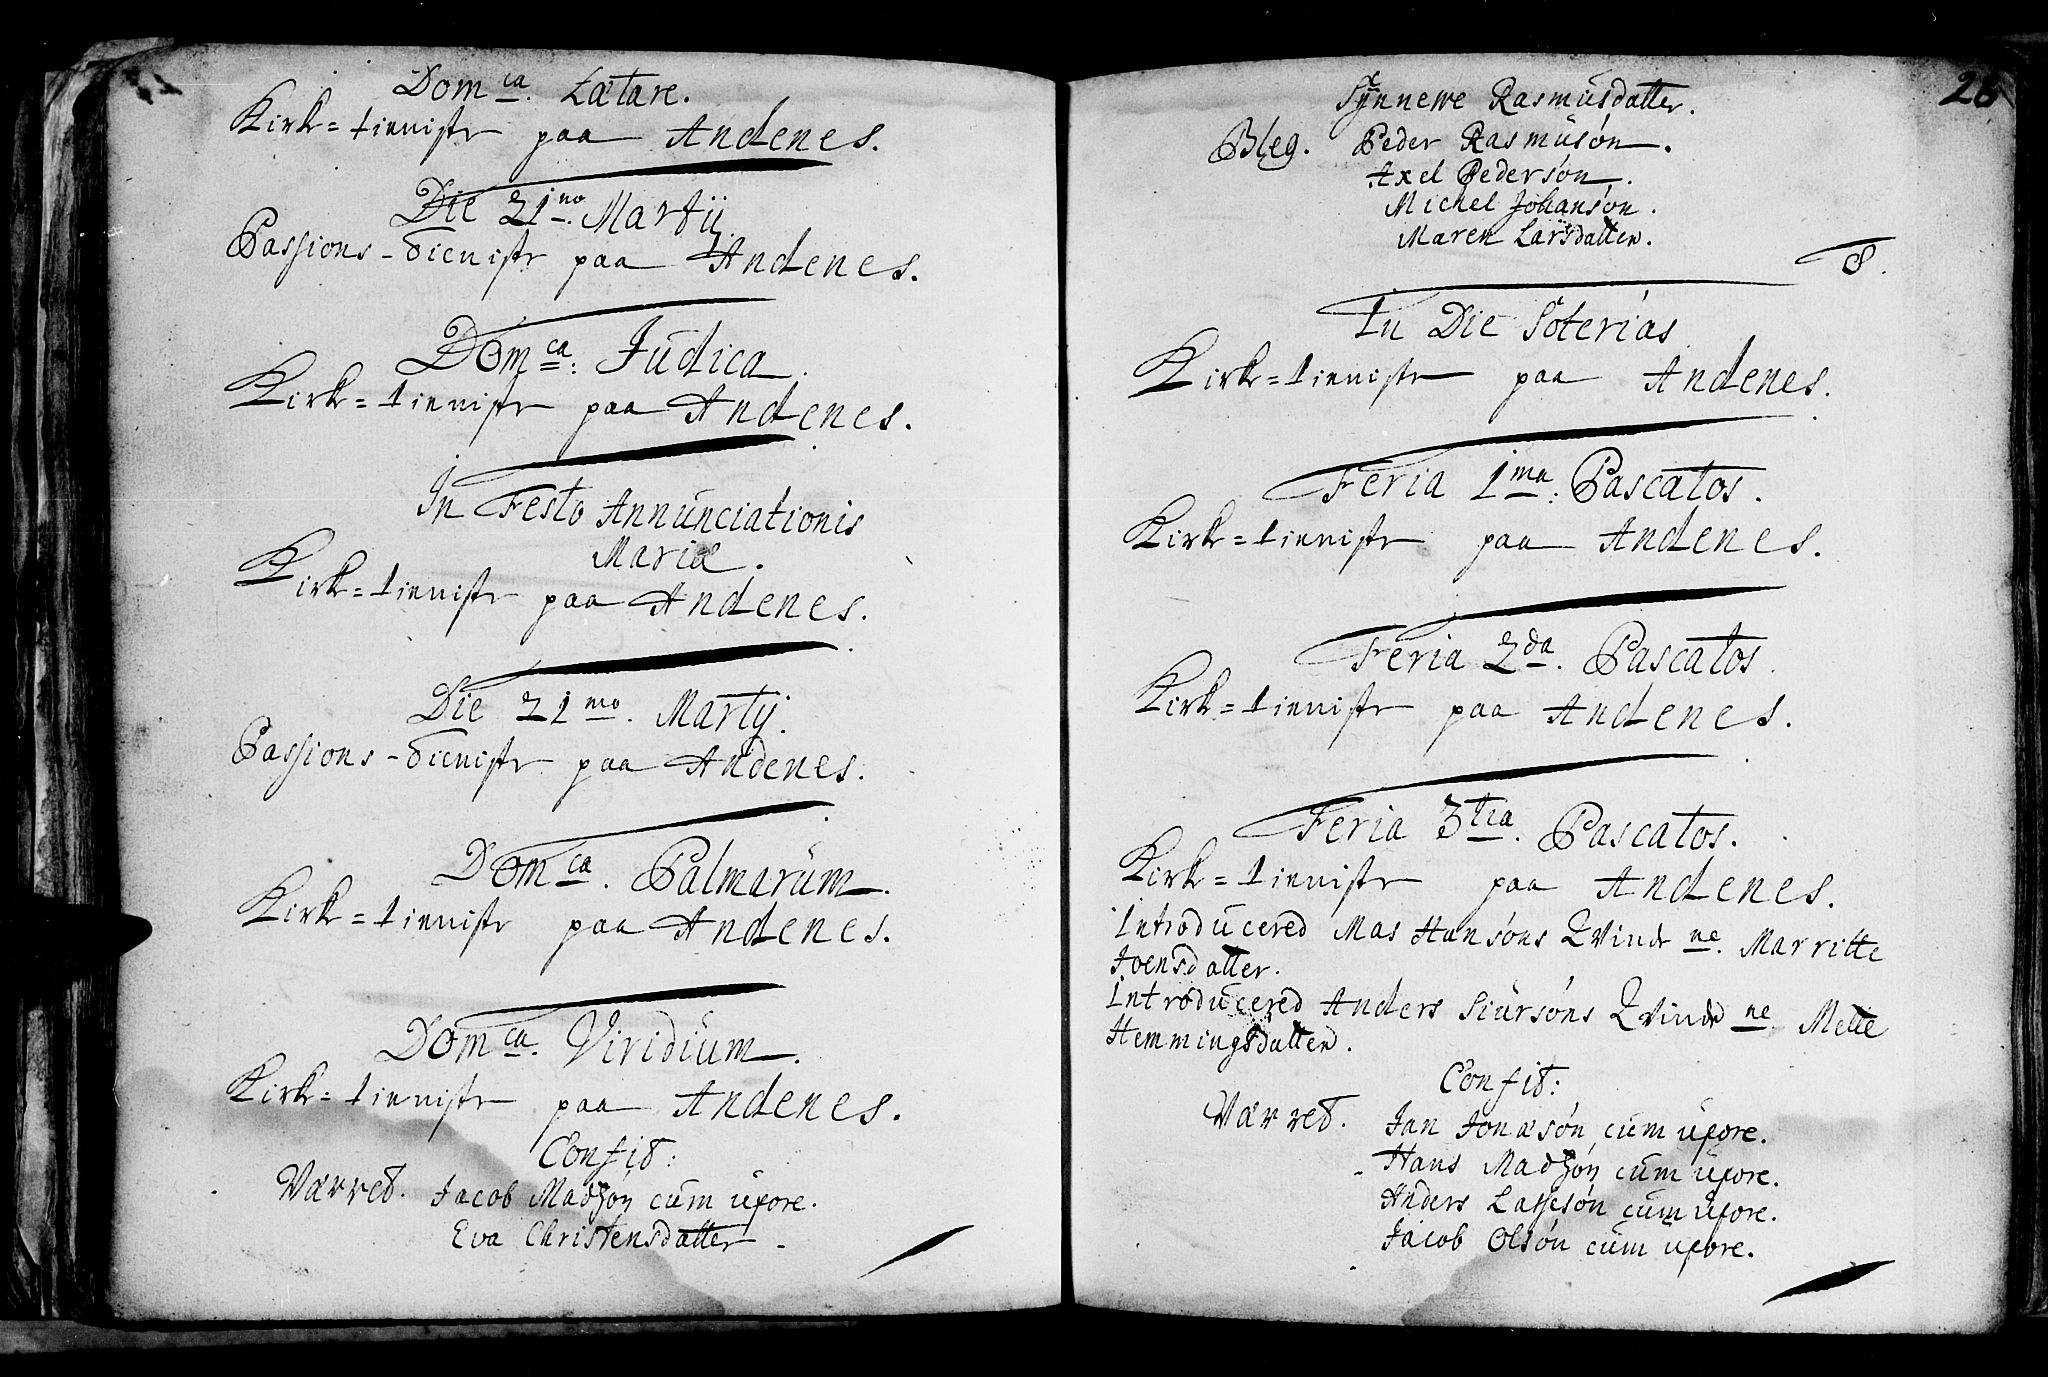 Dom<sup>ca</sup>. Lætare.
Kirk=tieniste paa Andenes.
Die 21<sup>no</sup>. Martij
Passions-dieniste paa Andenes.
Dom<sup>ca</sup>: Judica.
Kirk=tieniste paa Andenes.
In Festo Annunciationis
Mariæ.
Kirk=tieniste paa Andenes.
Die 21<sup>mo</sup>. Martij.
Passions-dieniste paa Andenes.
Dom<sup>ca</sup>. Palmarum.
Kirk=tieniste paa Andenes.
Dom<sup>ca</sup>. Viridium.
Kirk=tieniste paa Andenes.
Confit:
Værred. Jacob Madzøn cum uxore.
Eva Christensdatter
26
Synnewe Rasmusdatter.
Bleg. Peder Rasmusøn.
Axel Pedersøn.
Michel Johansøn.
Maren Larsdatter.
In Die Soterias
Kirk=tieniste paa Andenes.
Feria 1<sup>ma</sup>. Pascatos.
Kirk=tieniste paa Andenes.
Feria 2<sup>da</sup>. Pascatos.
Kirk=tieniste paa Andenes.
Feria 3<sup>tia</sup>. Pascatos.
Kirk=tieniste paa Andenes.
Introducered Mas Hansøns Qvinde ne. Marritte
Joensdatter.
Introducered Anders Siursøns Qvinde ne. Mette
Hemmingsdatter.
Confit:
Værred. Jan Jonæsøn cum uxore.
Hans Madzøn cum uxore.
Anders Lassesøn cum uxore.
Jacob Olsøn cum uxore.